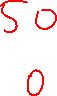 50
0